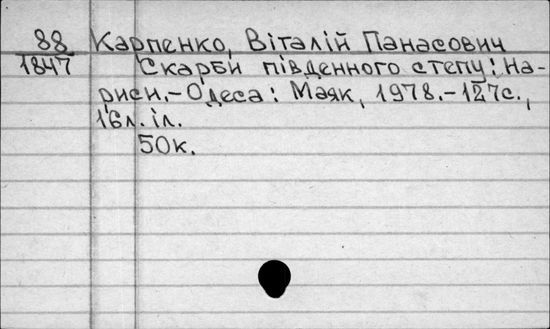 88 Карпенко, Віталій Панасович
1847 Скарби південного степу: На-
риси.-Одеса: Маяк, 1978.-127с.,
16л. іл.
50к.